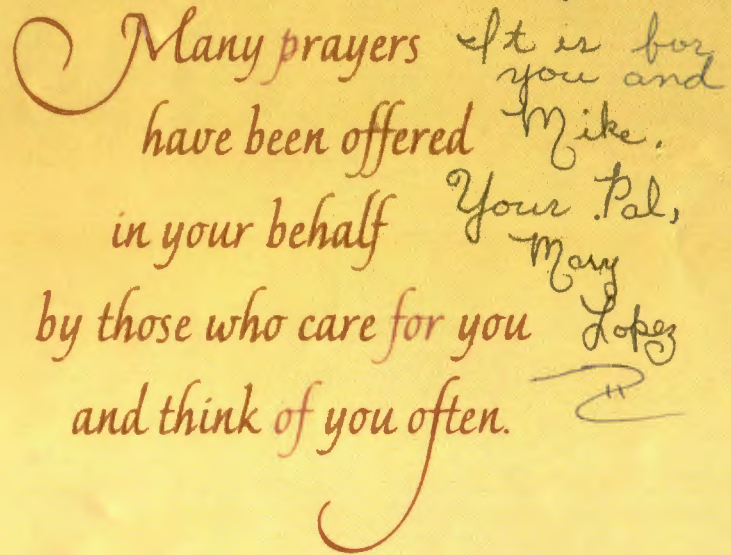 Many prayers
have been offered
in your behalf
by those who care for you
and think of you often.
It is for
you and
Mike.
Your Pal,
Mary
Lopez